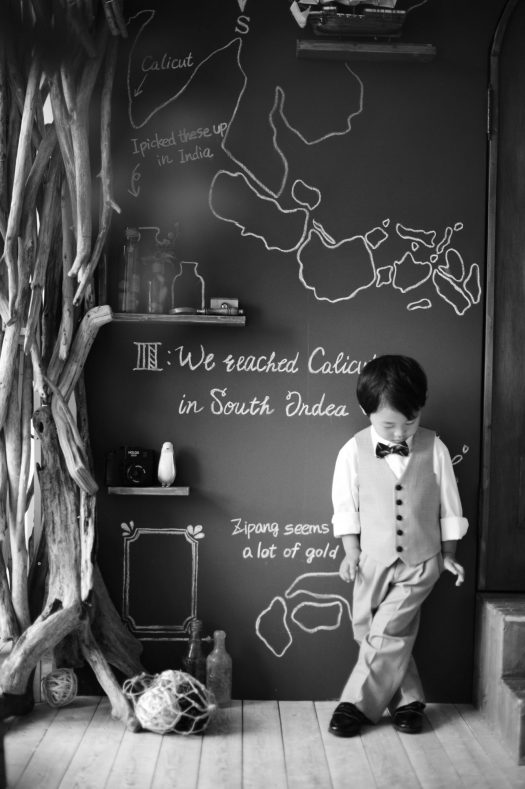 S
Calicut
I picked these up
in India
III: We reached Calicut
in South Indea
Zipang seems
a lot of gold